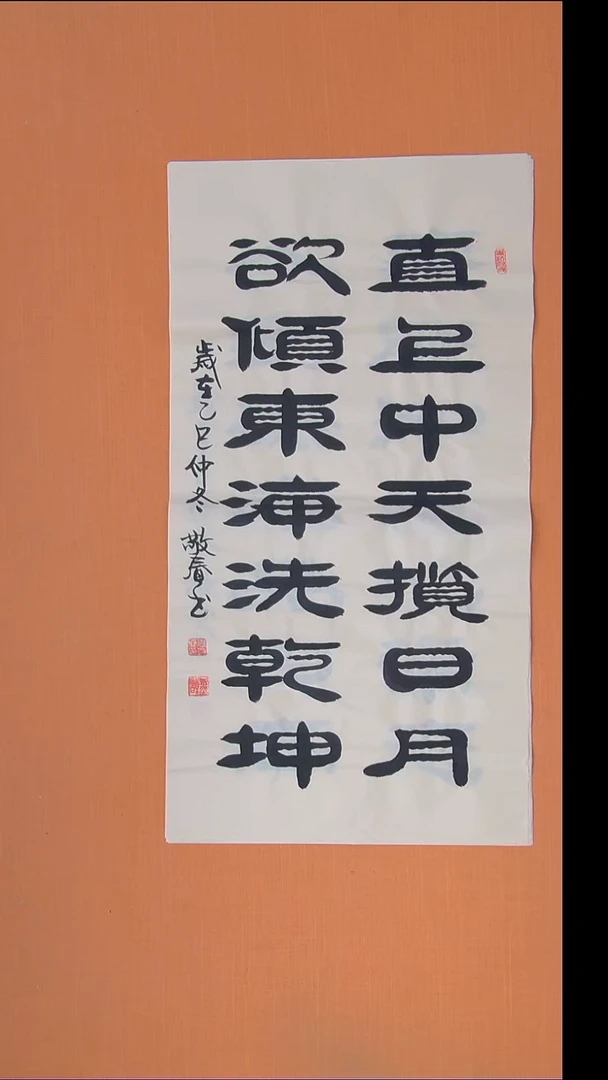 直上中天攬日月
欲傾東海洗乾坤
歲在乙巳仲冬 敬春书